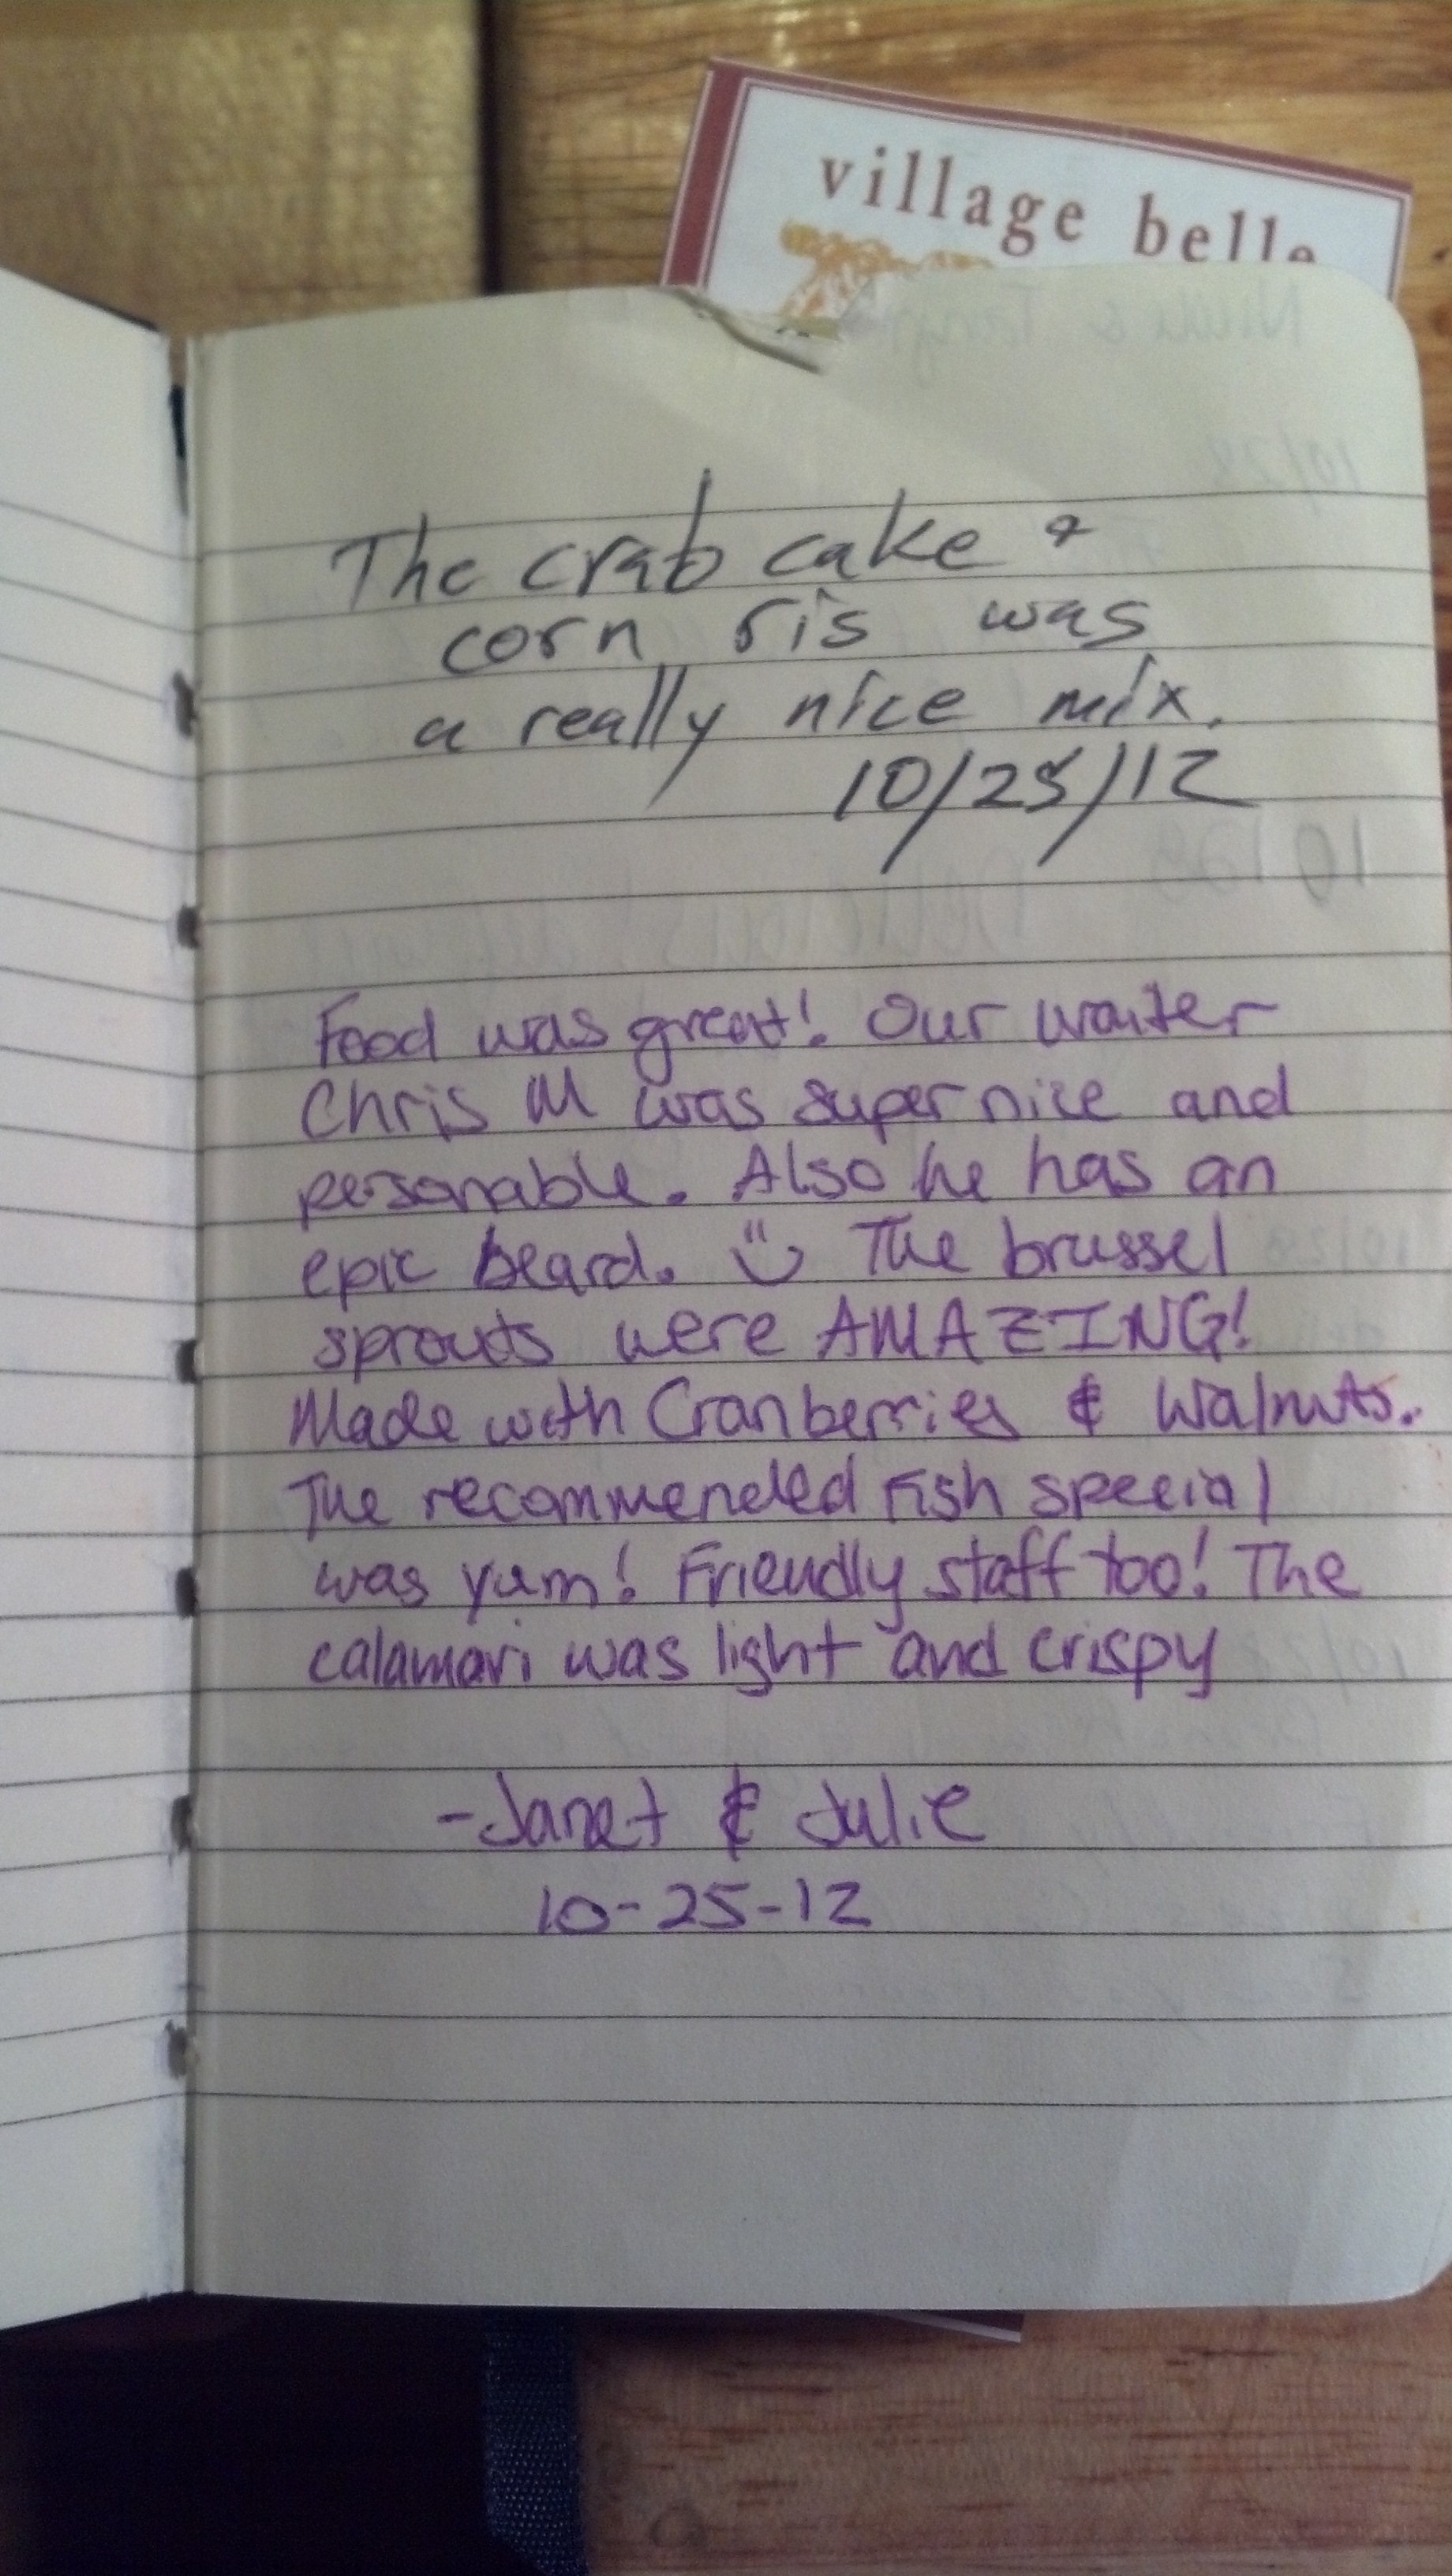 village belle
The crab cake &
corn ris was
a really nice mix.
10/25/12
Food was great! Our waiter
Chris M was super nice and
personable. Also he has an
epic beard. The brussel
sprouts were AMAZING!
Made with Cranberries & Walnuts.
The recommended Fish special
was yum! Friendly staff too! The
calamari was light and crispy
-Janet & Julie
10-25-12